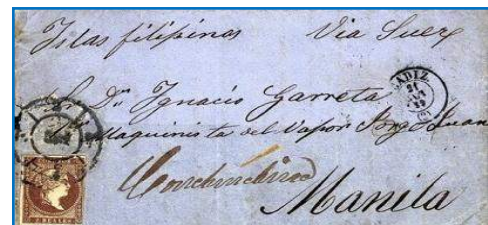 Islas filipinas Via Suez
Sr. Dn. Ignacio Garreta
Maquinista del Vapor Jorge Juan
Conchinchina
Manila
CADIZ
21